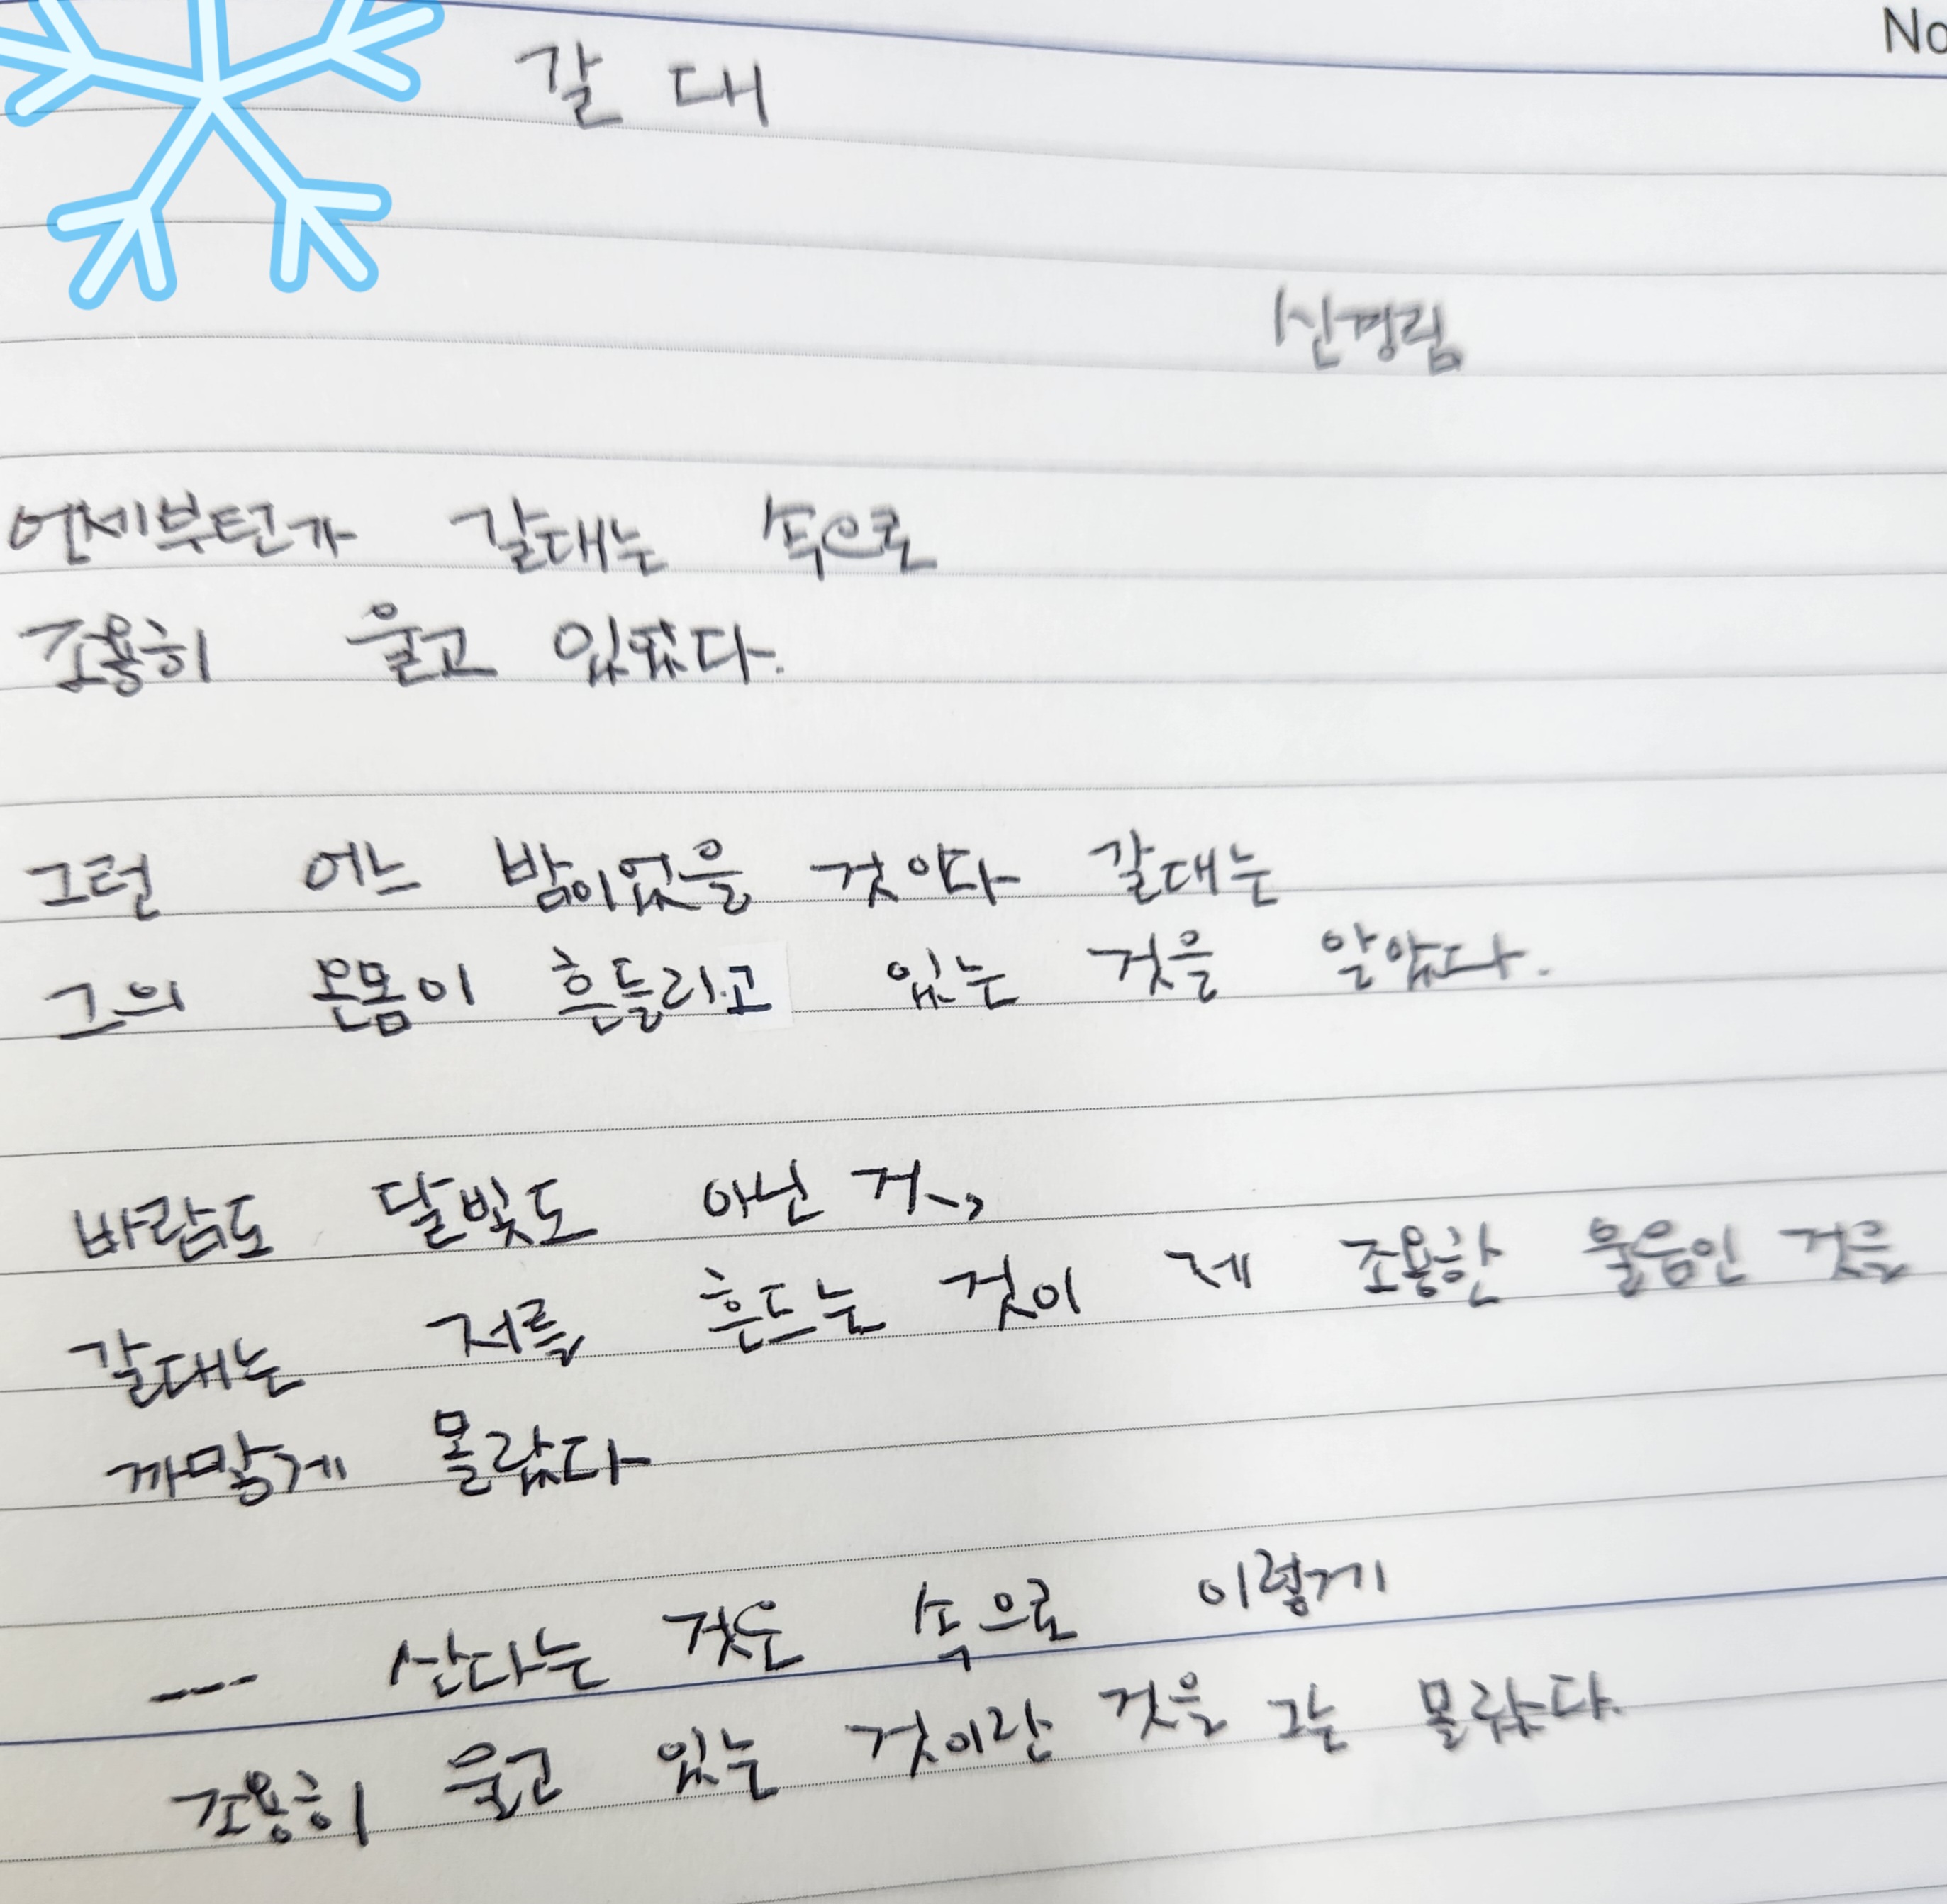 No
갈대
신경림
언제부턴가 갈대는 속으로
조용히 울고 있었다.
그런 어느 밤이었을 것이다 갈대는
그의 온몸이 흔들리고 있는 것을 알았다.
바람도 달빛도 아닌 거,
갈대는 저를 흔드는 것이 제 조용한 울음인 것을
까맣게 몰랐다
--- 산다는 것은 속으로 이렇게
조용히 울고 있는 것이란 것을 그는 몰랐다.